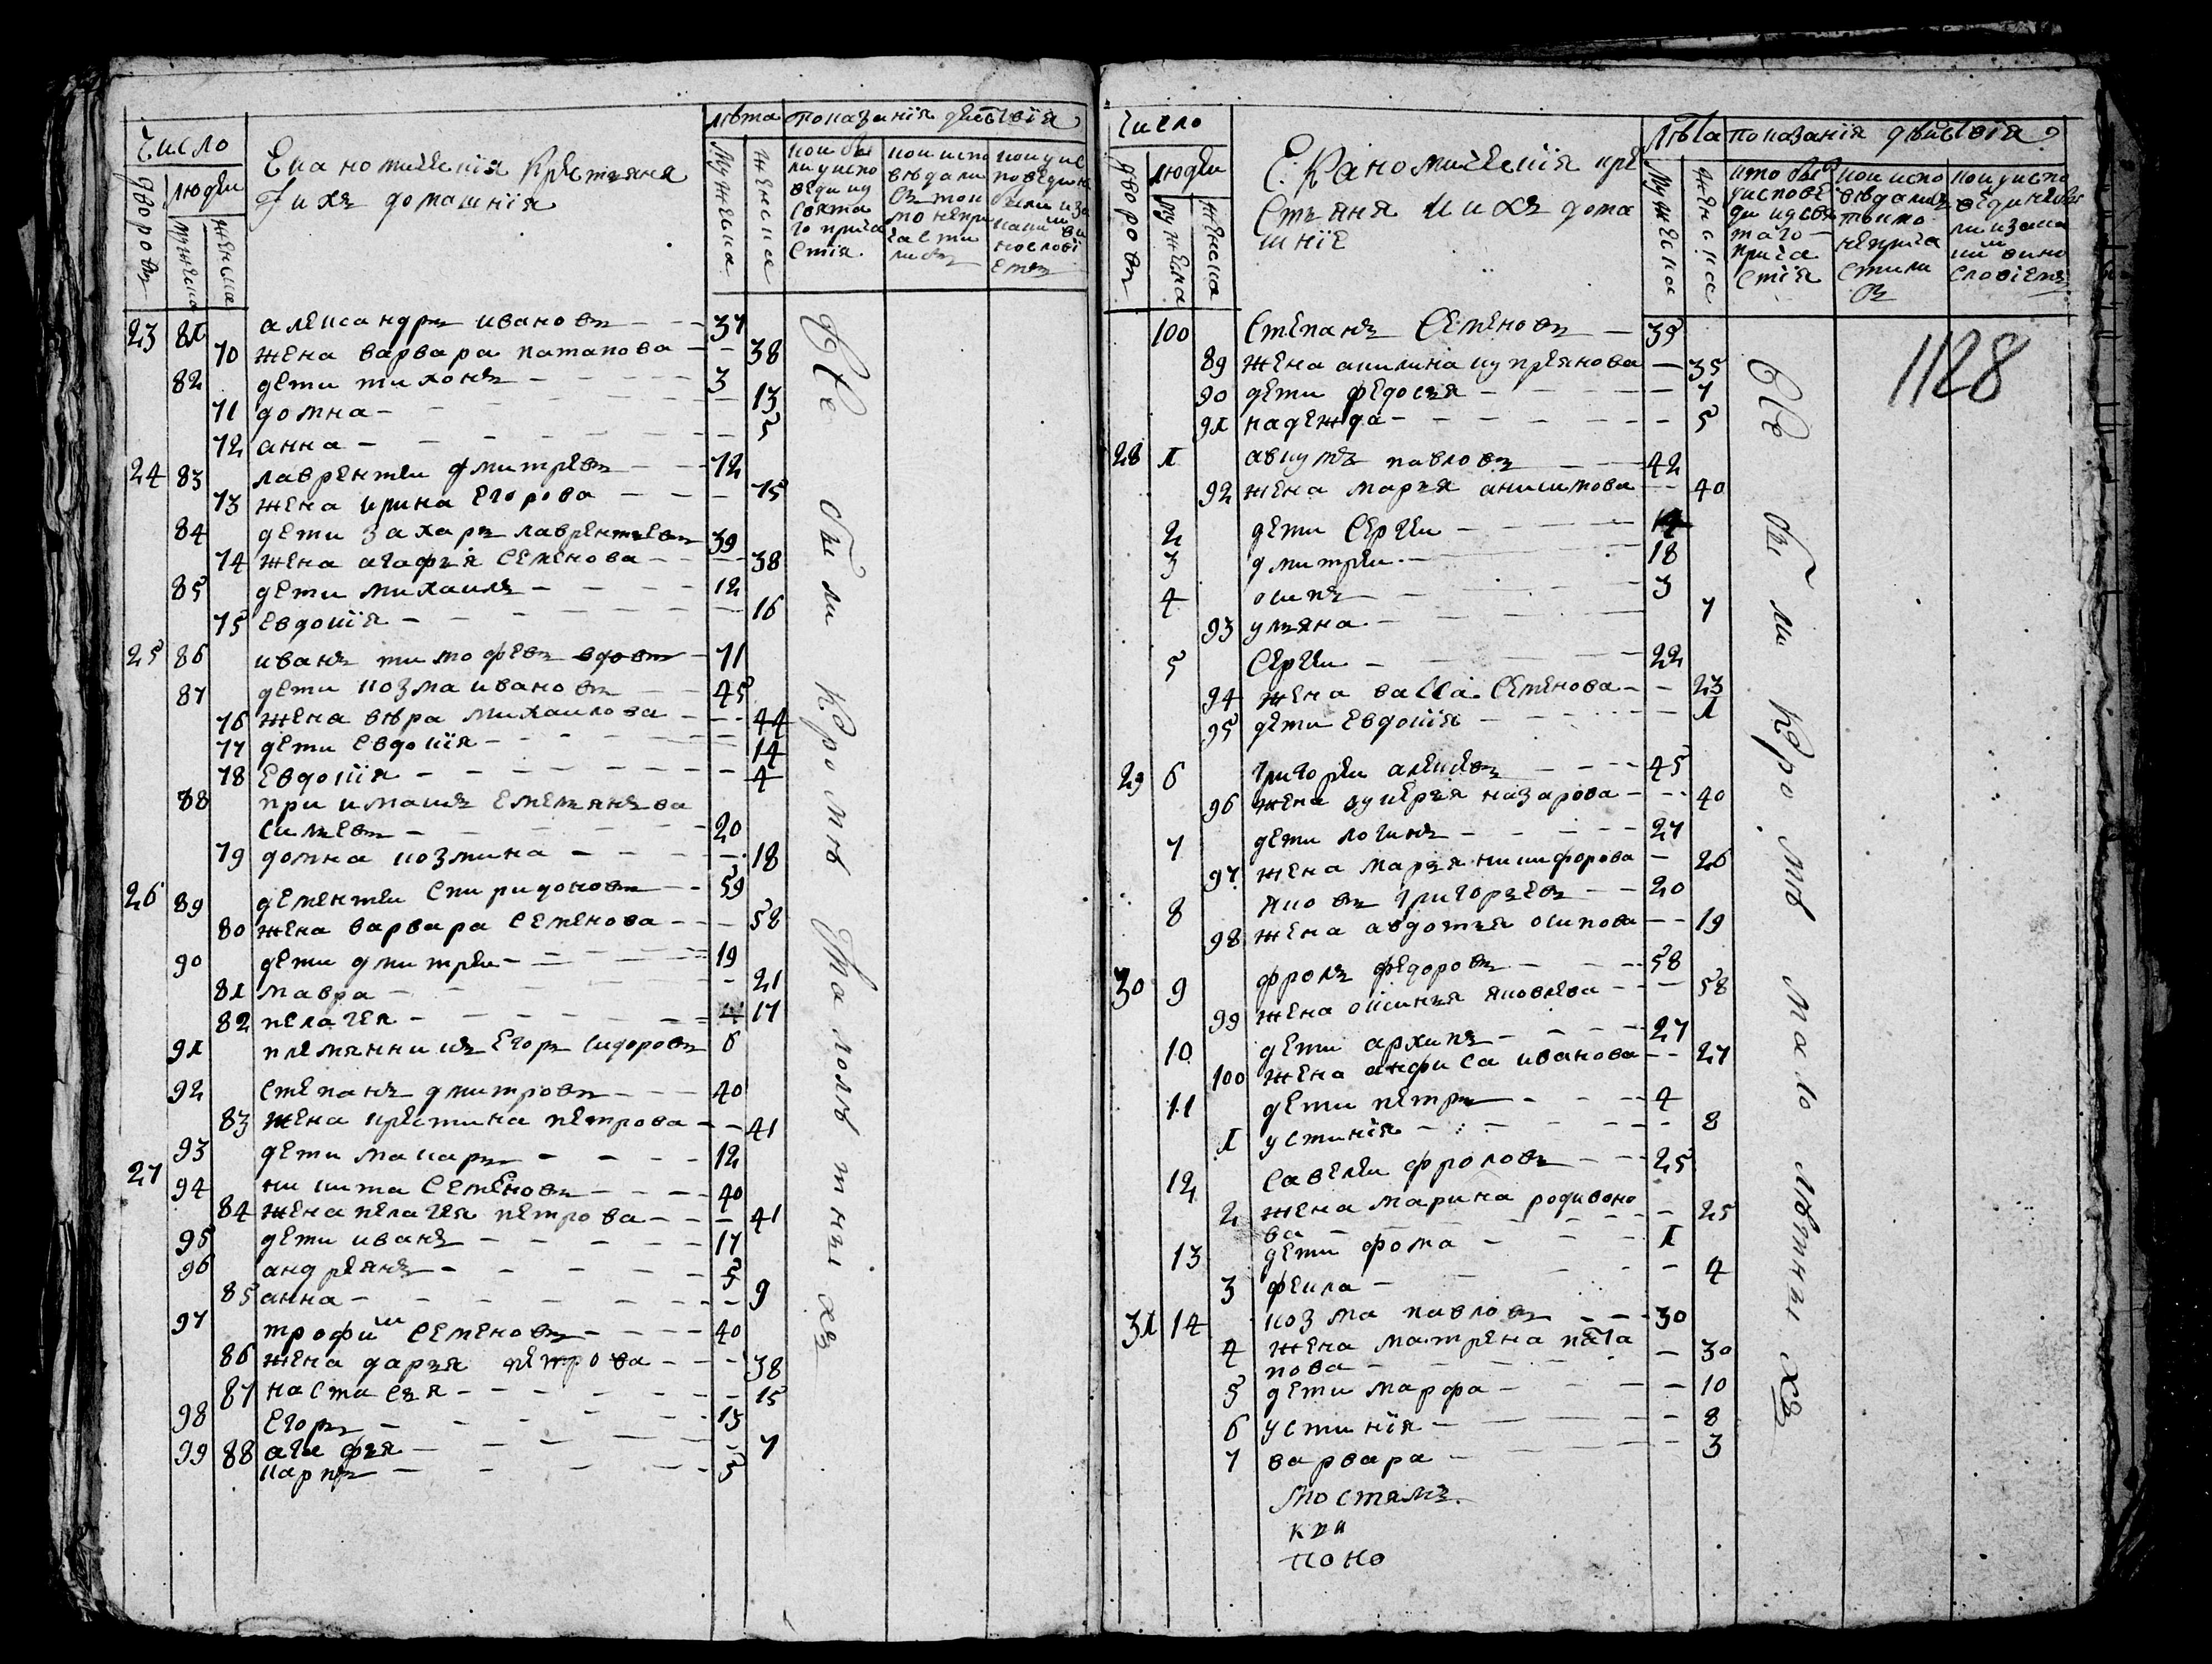 число
людеи
дворовъ
мужеска
женска
Екакономическия крестьяня
И ихъ домашнiя
лѣта показанiя дѣиствiя
мужеска
женска
кои бы
ли у испо
веди и у
свята
го прича
стiя
кои испо
вѣдали
съ токи
мо непри
частили
сь
кои у ис
повѣди не
были и за
каким ви
нословi
емъ
23 81 александръ ивановъ 37
70 жена варвара патапова 38
82 дети тихонъ 3
71 домна 13
72 анна 5
24 83 лаврентеи дмитревъ 72
73 жена ирина егорова 75
84 дети захаръ лаврентьевъ 39
74 жена агафья семенова 38
85 дети михаилъ 12
75 евдокiя 16
25 86 иванъ тимофевъ вдовъ 71
87 дети козма ивановъ 45
76 жена вѣра михаилова 44
77 дети евдокiя 14
78 евдокiя 4
88 приимашъ емельянъ ва
сильевъ 20
79 домна козмина 18
26 89 дементеи спиридоновъ 59
80 жена варвара семенова 58
90 дети дмитреи 19
81 мавра 21
82 пелагея 17
91 племянникъ егоръ сидоровъ 6
92 степанъ дмитровъ 40
83 жена крестина петрова 41
93 дети макаръ 12
27 94 никита семеновъ 40
84 жена пелагея петрова 41
95 дети иванъ 17
96 андреянъ 5
85 анна 9
97 трофим семеновъ 40
86 жена дарья петрова 38
87 настасья 15
98 егоръ 15
88 агафья 7
99 карпъ 5
Все были кромѣ малолѣтныхъ
число
людеи
дворовъ
мужеска
женска
Екакономическiя кре
стьяня и ихъ дома
шнiе
Лѣта показанiя дѣиствiя
мужеска
женска
кто был
у исповѣ
ди и у свя
таго
прича
стiя
кои испо
вѣдались
токмо
неприча
стили
сь
кои у испо
вѣди не бы
ли и за ка
ким вино
словiемъ
1128
100 степанъ семеновъ 39
89 жена акилина купреянова 35
90 дети федосья 7
91 надежда 5
28 1 авкумъ павловъ 42
92 жена марья анисимова 40
2 дети сергеи
3 дмитреи 18
4 осипъ 3
93 ульяна 7
5 сергеи 22
94 жена васса семенова 23
95 дети евдокiя 1
29 6 григореи алексѣвъ 45
96 жена лукерья назарова 40
7 дети логинъ 27
97 жена марья никифорова 26
8 яковъ григорьевъ 20
98 жена авдотья осипова 19
30 9 фролъ федоровъ 58
99 жена оксинья яковлева 58
10 дети архипъ 27
100 жена анфиса иванова 27
11 дети петръ 4
1 устинiя 8
12 савелеи фроловъ 25
2 жена марина родивоно
ва 25
13 дети фома 1
3 фекла 4
31 14 козма павловъ 30
4 жена матрена пата
пова 30
5 дети марфа 10
6 устинiя 8
7 варвара 3
Все были кромѣ малолѣтныхъ
мостямъ
кпи
поно